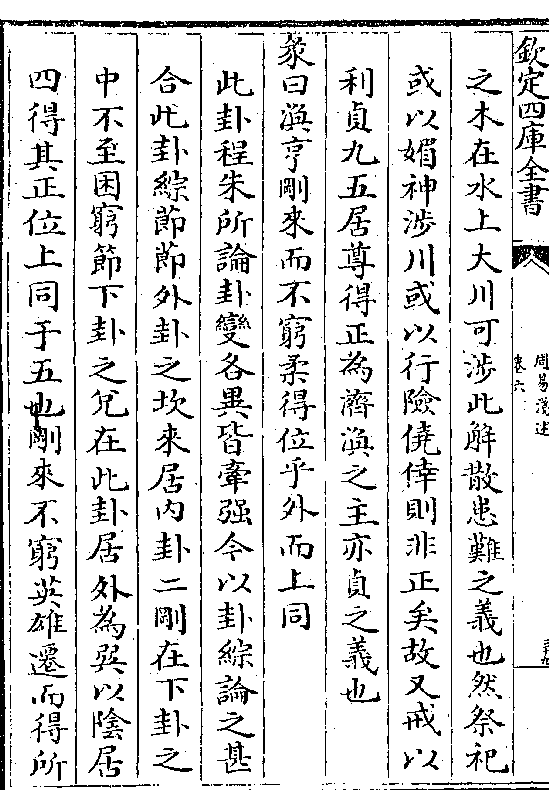 欽定四庫全書
周易淺述
卷六
之木在水上大川可涉此解散患難之義也然祭祀
或以媚神涉川或以行險僥倖則非正矣故又戒以
利貞九五居尊得正為濟渙之主亦貞之義也
彖曰渙亨剛來而不窮柔得位乎外而上同
此卦程朱所論卦變各異皆牽强今以卦綜論之甚
合此卦綜節節外卦之坎來居内卦二剛在下卦之
中不至困窮節下卦之兌在此卦居外為巽以陰居
四得其正位上同于五也剛來不窮英雄遷而得所